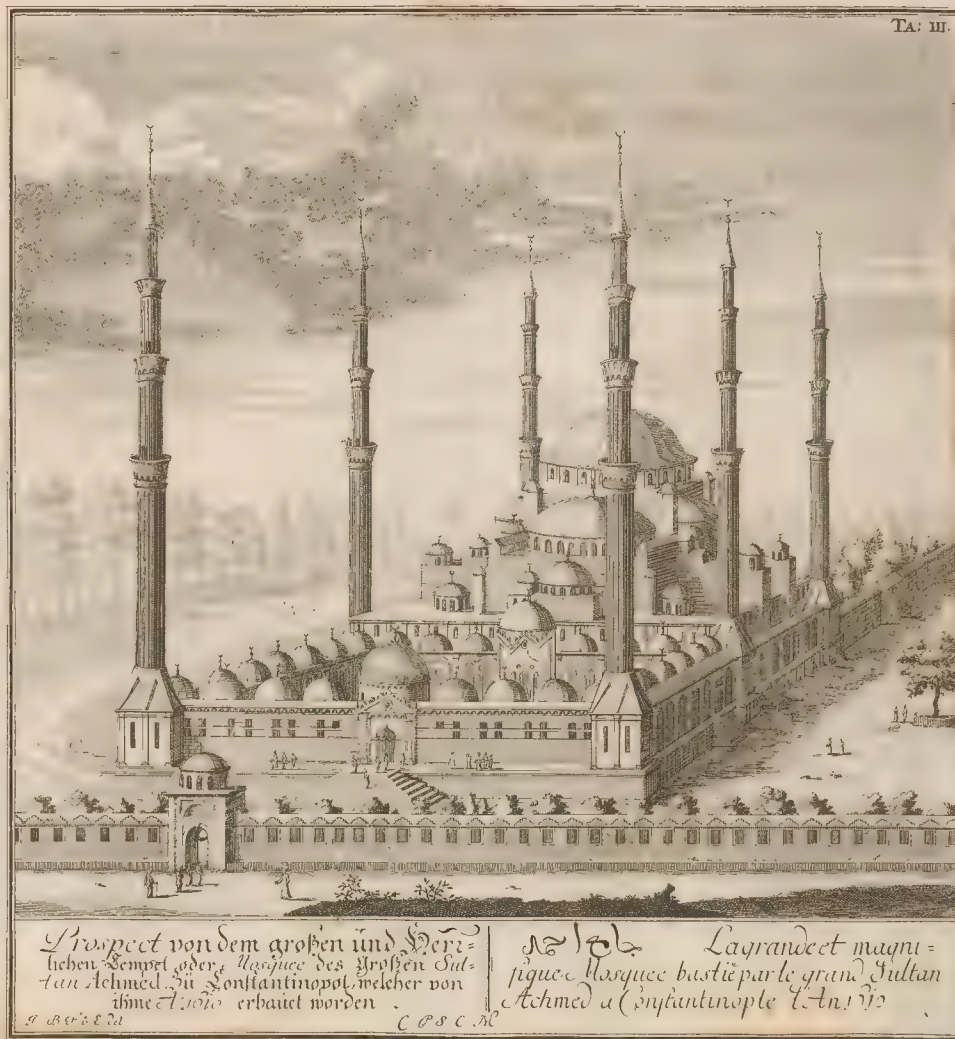 TA: III.
Prospect von dem großen und Herr=
lichen Tempel oder Mosquee des Großen Sul=
tan Achmed. Zu Constantinopol, welcher von
ihme A. erbauet worden.
La grande et magni=
fique Mosquee bastie par le grand Sultan
Achmed a Constantinople l'An
C P S C M